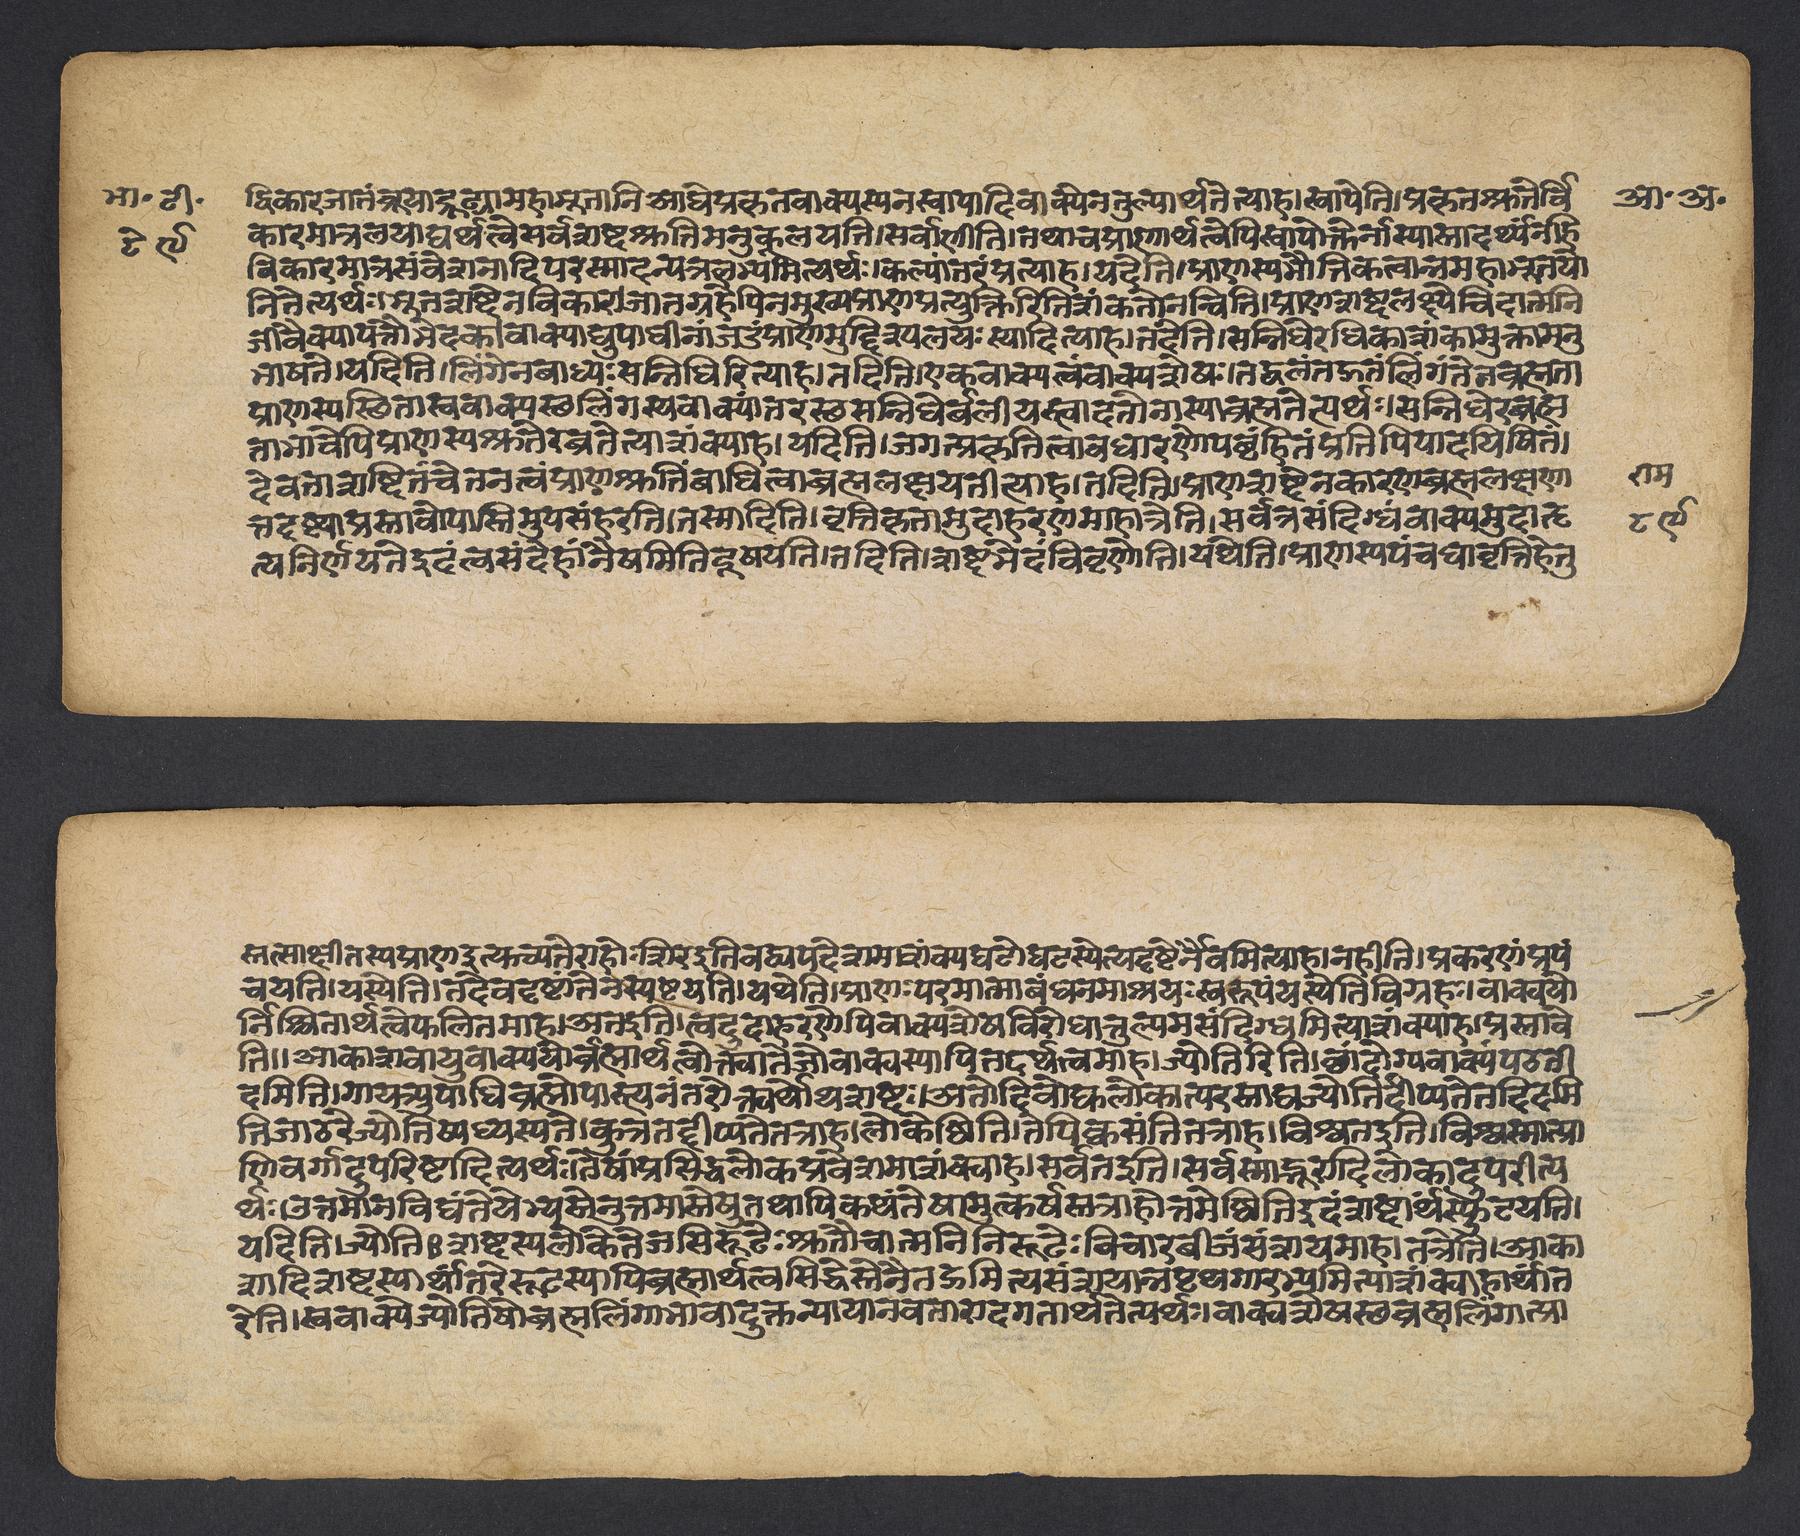 भा॰ टी॰
८९
आ॰ अ॰
द्विकारजातं
महाभूतानि
प्रकृतवाक्यस्य न स्वापादिवाक्येन तुल्यार्थतेत्याह। स्वापेति। प्रकृतश्रुतेर्वि
कारमात्रलयाद्यर्थत्वे सर्वशब्दश्रुतिमनुकूलयति। सर्वाणीति। तथाच प्राणार्थत्वेपि स्वापोक्तेर्नास्यास्तादर्थ्यं नहि
विकारमात्रसंवेशनादि परस्मादन्यत्र लभ्यमित्यर्थः। कल्पांतरं प्रत्याह। यदेति। प्राणस्य भौतिकत्वान्न महाभूतयो
नितेत्यर्थः। भूतशब्देन विकारजातग्रहेपि न मुख्यप्राणप्रत्युक्तिरिति शंकते। नन्विति। प्राणशब्दलक्ष्ये चिदात्मनि
जीवैक्यापत्तौ भेदकवाक्याद्युपाधीनां
प्राणमुद्दिश्य लयः स्यादित्याह। तदेति। सन्निधेरधिकाशंकामुक्तामनु
भाषते। यदिति। लिंगेन बाध्यः सन्निधिरित्याह। तदिति। एकवाक्यत्वं वाक्यशेषः। तद्बलं तद्गतं लिंगं तेन ब्रह्मता
प्राणस्य स्थिता स्ववाक्यस्थलिंगस्य वाक्यांतरस्थसन्निधेर्बलीयस्त्वादतो नास्याब्रह्मतेत्यर्थः। सन्निधेरब्रह्म
ताभावेपि प्राणस्य श्रुतेरब्रतेत्याशंक्याह। यदिति। जगत्प्रकृतित्वावधारणोपबृंहितं प्रतिपिपादयिषितं।
देवताशब्दितं चेतनत्वं प्राणश्रुतिं बाधित्वा ब्रह्म लक्षयतीत्याह। तदिति। प्राणशब्देन कारणब्रह्मलक्षणा
त्तदृष्ट्या प्रस्तावोपास्तिमुपसंहरति। तस्मादिति। वृत्तिकृतामुदाहरणमाहात्रेति। सर्वत्र संदिग्धं वाक्यमुदाहृ
त्य निर्णयते इदं त्वसंदेहान्नैषमिति दूषयति। तदिति। शब्दभेदं विवृणोति। यथेति। प्राणस्य पंचधावृत्तिहेतु
राम
८९
स्तत्साक्षी तस्य प्राण इत्युच्यते राहोः शिर इतिवद्व्यपदेशमाशंक्य घटो घटस्येत्यदृष्टेर्नैवमित्याह। नहीति। प्रकरणं प्रपं
चयति। यस्येति। तदेव दृष्टांतेन स्पष्टयति। यथेति। प्राणः परमात्मा बंधनमाश्रयः स्वरूपं यस्येति विग्रहः। वाक्ययो
र्निश्चितार्थत्वे फलितमाह। अत इति। त्वदुदाहरणेपि वाक्यशेषविरोधात्तुल्यमसंदिग्धमित्याशंक्याह। प्रस्तावे
ति॥ आकाशवायुवाक्ययोर्ब्रह्मार्थत्वोक्त्या तेजोवाक्यस्यापि तदर्थत्वमाह। ज्योतिरिति। छांदोग्यवाक्यं पठती
दमिति। गायत्र्युपाधिब्रह्मोपास्त्यनंतरोक्त्यर्थोथशब्दः। अतो दिवो द्युलोकात्परस्ताद्यज्ज्योतिर्दीप्यते तदिदमि
ति जाठरे ज्योतिष्यध्यस्यते। कुत्र तद्दीप्यते तत्राह। लोकेष्विति। तेपि क्व संति तत्राह। विश्वत इति। विश्वस्मात्प्रा
णिवर्गादुपरिष्टादित्यर्थः। तेषां प्रसिद्धलोकप्रवेशमाशंक्याह। सर्वत इति। सर्वस्माद्भूरादिलोकादुपरीत्य
र्थः। उत्तमा न विद्यंते येभ्यस्तेनुत्तमास्तेषु तथापि कथं तेषामुत्कर्षस्तत्राहोत्तमेष्विति इदंशब्दार्थं स्फुटयति।
यदिति। ज्योतिः शब्दस्य लोके तेजसि रूढेः श्रुतौ चात्मनि निरूढेः विचारबीजं संशयमाह। तत्रेति। आका
शादिशब्दस्यार्थांतरे रूढस्यापि ब्रह्मार्थत्वसिद्धेस्तेनैतद्गमित्यसंशयान्न पृथगारभ्यमित्याशंक्याहार्थांत
रेति। स्ववाक्ये ज्योतिषो ब्रह्मलिंगाभावादुक्तन्यायानवतारादगतार्थतेत्यर्थः। वाक्यशेषस्थब्रह्मलिंगात्प्रा